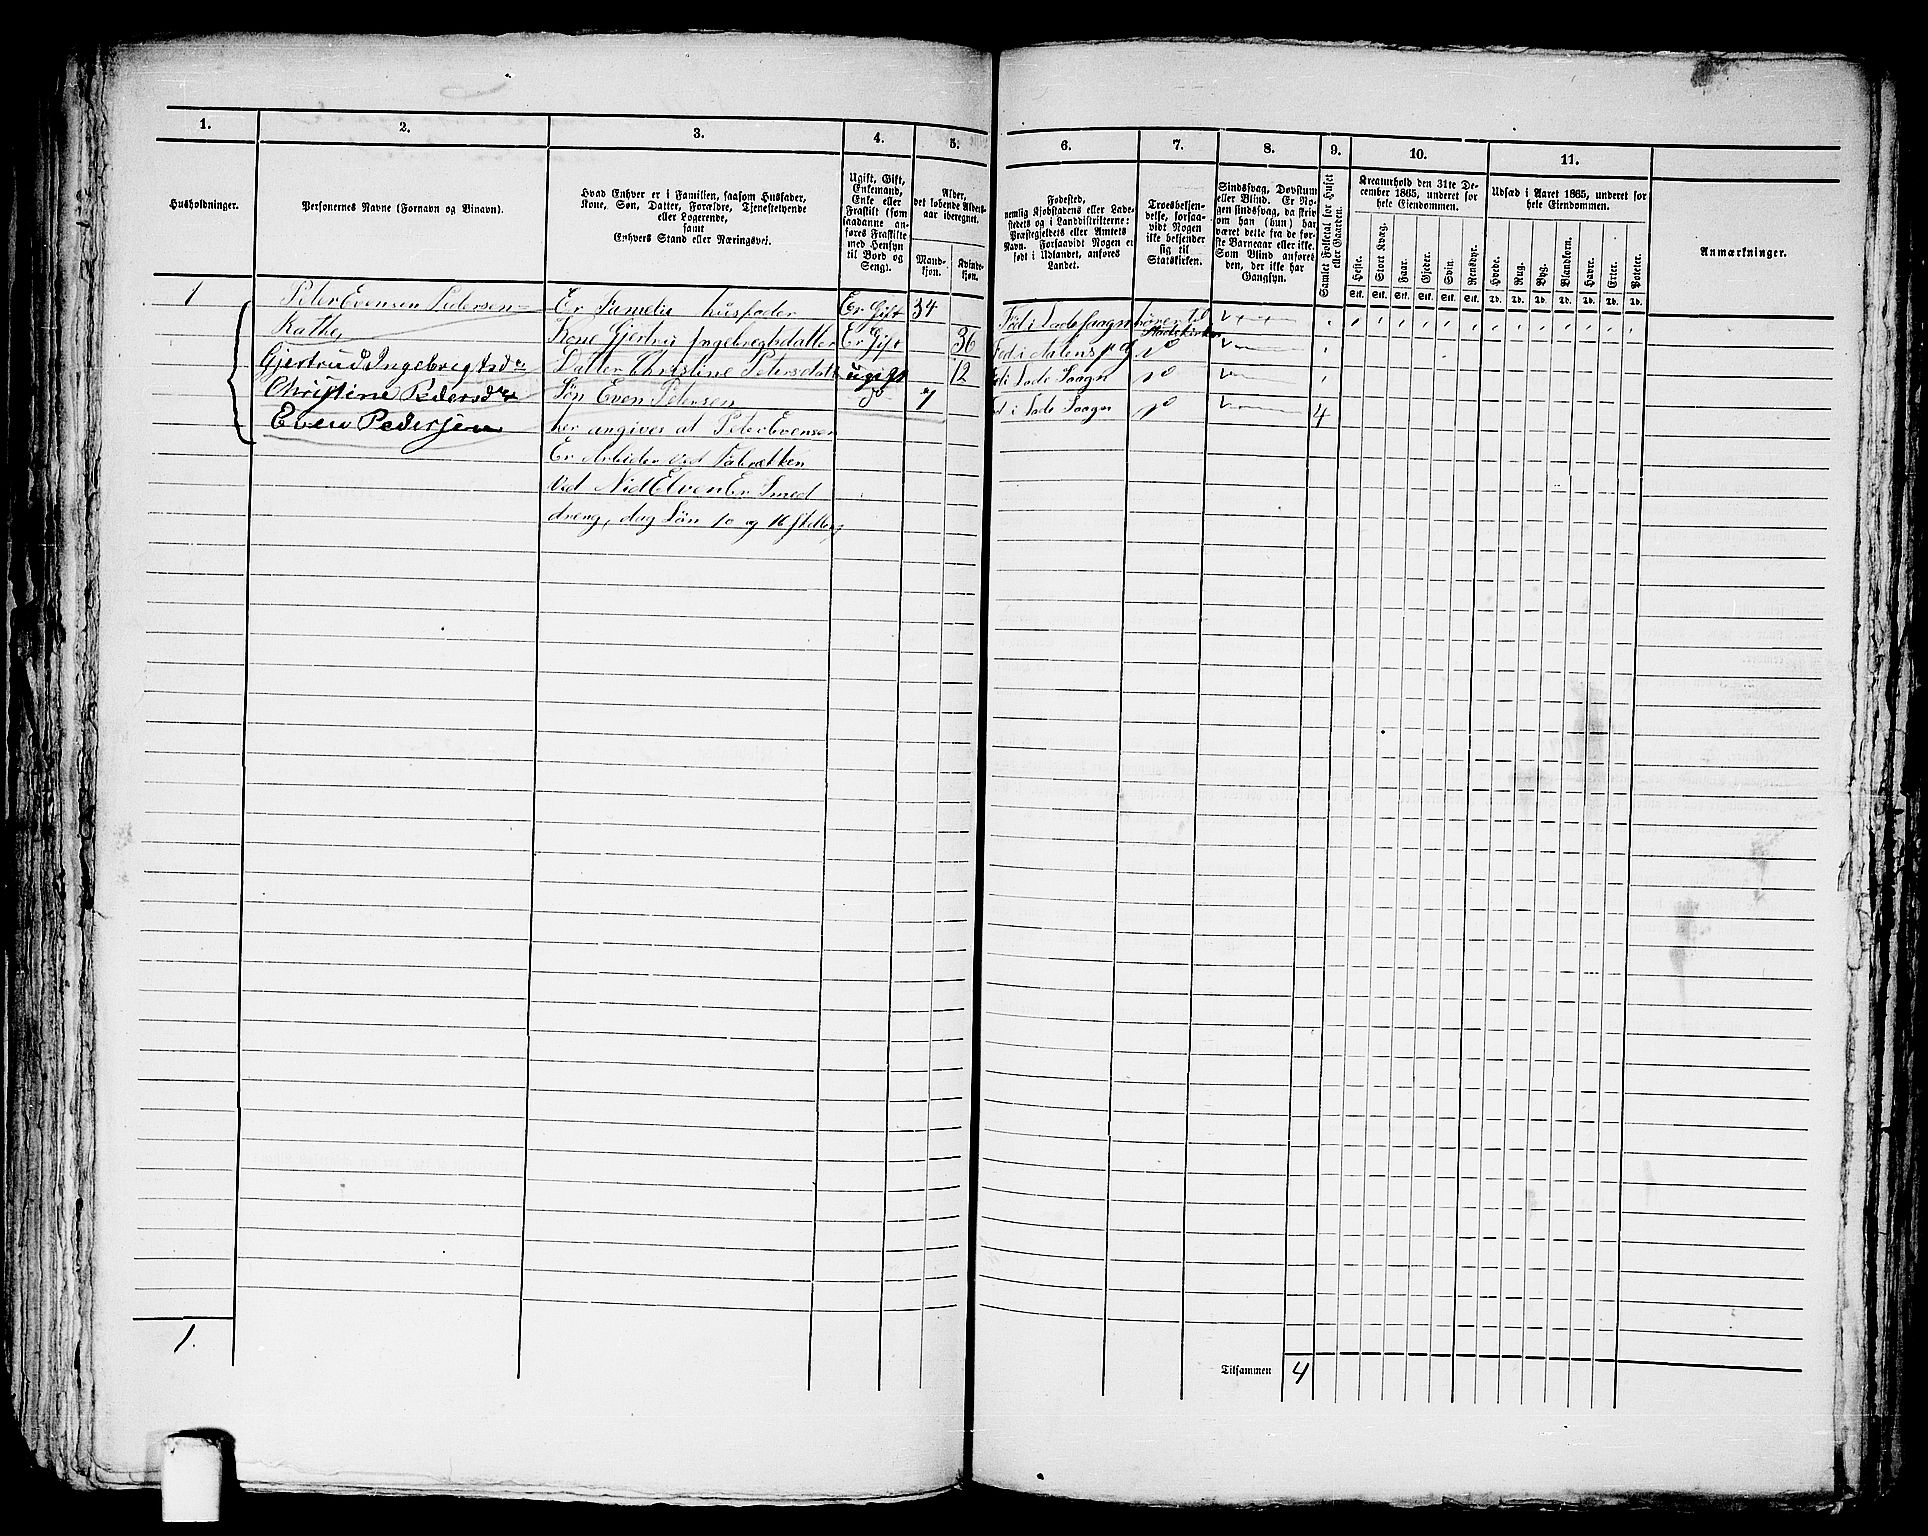 1.
2.
3.
4.
5.
6.
7.
8.
9.
10.
11.
Husholdninger.
Personernes Navne (Fornavn og Binavn).
Hvad Enhver er i Familien, saasom Husfader,
Kone, Søn, Datter, Forældre, Tjenestetyende
eller Logerende,
samt
Enhvers Stand eller Næringsvei.
Ugift, Gift,
Enkemand,
Enke eller
Fraskilt (som
saadanne an-
føres Fraskilte
med Hensyn
til Bord og
Seng).
Alder,
det løbende Alders-
aar iberegnet.
Mand-
kjøn.
Kvinde-
kjøn.
Fødested,
nemlig Kjøbstadens eller Lade-
stedets og i Landdistrikterne:
Præstegjeldets eller Amtets
Navn. Forsaavidt Nogen er
født i Udlandet, anføres
Landet.
Troesbekjen-
delse, forsaa-
vidt Nogen
ikke bekjender
sig til
Statskirken.
Sindssvag, Døvstum
eller Blind. Er No-
gen sindssvag, da skriv
om han (hun) har
været dette fra de før-
ste Barneaar eller ikke.
Som Blind anføres
den, der ikke har
Gangsyn.
Samlet Folketal for Huset
eller Gaarden.
Kreaturhold den 31te De-
cember 1865, underet for
hele Eiendommen.
Heste.
Stort Kvæg.
Faar.
Gjeder.
Svin.
Rensdyr.
Stk. Stk. Stk. Stk. Stk. Stk.
Udsæd i Aaret 1865, underet for
hele Eiendommen.
Hvede.
Rug.
Byg.
Blandkorn.
Havre.
Erter.
Poteter.
Td. Td. Td. Td. Td. Td. Td.
Anmærkninger.
1 Peter Evensen Pedersen Er Famelie husfader Er Gift 34 Född i Lade Saagn hörer til Stadskirken
Kathe, Kone Gjertru Ingebregtsdatter Er Gift 36 Föd i Aalens pg do
Gjertrud Ingebrigtsdr Datter Christine Petersdatt ugift 12 Föd i Lade Saagn do
Christine Pedersdr Søn Even Petersen do 7 Föd i Lade Saagn do 4
Even Pedersen her angives at Peter Evensen
Er Arbider ved Fabrekken
Ved Nid Elven Er Smed
dreng, dag Løn 10 og 16 skelling
1.
Tilsammen 4